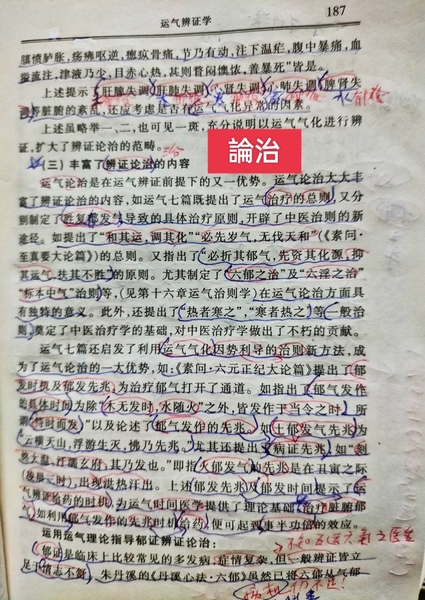 运气辨证学
187
膹愤胪胀，疡痱呕逆，瘛疭骨痛，节乃有动，注下温疟，腹中暴痛，血
溢流注，津液乃少，目赤心热，其则瞀闷懊侬，善暴死”皆是。
上述提示
肝脾失调
肝肺失调
肾失调
肺失调
脾肾失
脏腑的紊乱，还应考虑是古有运气气化异常的因素。
上述虽略举一、二，也可见一斑，充分说明以运气气化进行辨
证，扩大了辨证论治的范畴。
論治
(三) 丰富了辨证论治的内容
运气论治是在运气辨证前提下的又一优势。运气论治大大丰
富了辨证论治的内容，如运气七篇既提出了运气治疗的总则，又分
别制定了胜复郁发导致的具体治疗原则，开辟了中医治则的新
途径。如提出了“和其运，调其化”“必先岁气，无伐天和”(《素问·
至真要大论篇》)的总则。又指出了“必折其郁气，先资其化源，抑
其运气，扶其不胜”的原则。尤其制定了“六郁之治”及“六淫之治”
“标本中气”治则等，(见第十六章运气治则学)在运气论治方面具
有独特的意义。此外，还提出了“热者寒之”，“寒者热之”等一般治
则，奠定了中医治疗学的基础，对中医治疗学做出了不朽的贡献。
运气七篇还启发了利用运气气化因势利导的治则新方法，成
为了运气论治的一大优势，如：《素问·六元正纪大论篇》提出了郁
发时机及郁发先兆，为治疗郁气打开了通道。如指出了郁气发作
的具体时间为除“木无发时，水随火”之外，皆发作于当令之时，所
谓“待时而发”以及论述了郁气发作的先兆。如土郁发气先兆为
“云横天山，浮游生灭，怫乃先兆。”尤其还提出了病证先兆，如“刻
终大温，汗濡玄府，其乃发也。”即指火郁发气的先兆是在丑寅之际
(晚晨三时)，出现烘热汗出。上述郁发先兆及郁发时间提示了运
气辨证给药的时机，为运气时间医学提供了理论基础，治疗脏腑郁
气，如利用郁气发作的先兆时机给药，便可起到事半功倍的效应。
运用运气理论指导郁证辨证论治：
郁证是临床上比较常见的多发病，症情复杂，但一般辨证皆立
足于情志不舒，朱丹溪的《丹溪心法·六郁》虽然已将六郁从气郁